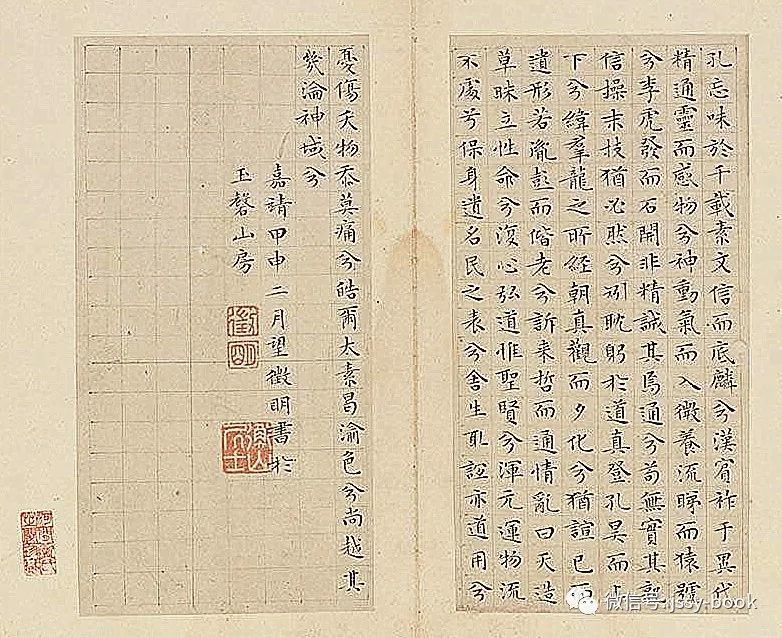 孔忘味於千載素文信而底麟兮漢賓祚于異代
精通靈而感物兮神動氣而入微養流睇而猿號
兮李虎發而石開非精誠其焉通兮苟無實其孰
信操末技猶必然兮矧耽躬於道真登孔昊而上
下兮緯羣龍之所經朝真觀而夕化兮猶諠已而
遺形若胤彭而偕老兮訴來哲而通情亂曰天造
草昧立性命兮復心弘道惟聖賢兮渾元運物流
不處兮保身遺名民之表兮舍生取誼亦道用兮
憂傷夭物忝莫痛兮皓爾太素曷渝色兮尚越其
幾淪神域兮
嘉靖甲申二月望徵明書於
玉磬山房
徵明
微信号: jssy-book